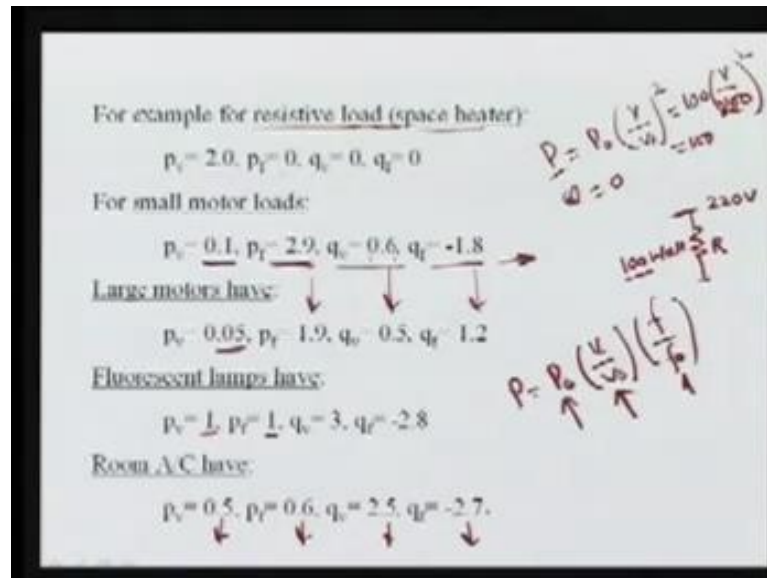 For example for resistive load (space heater):
pv= 2.0, pf= 0, qv= 0, qf= 0
For small motor loads:
pv= 0.1, pf= 2.9, qv= 0.6, qf= -1.8
Large motors have:
pv= 0.05, pf= 1.9, qv= 0.5, qf= 1.2
Fluorescent lamps have:
pv= 1, pf= 1, qv= 3, qf= -2.8
Room A/C have:
pv= 0.5, pf= 0.6, qv= 2.5, qf= -2.7.
P = P0 (V/V0)^2 = 100 (V/220)^2
= 100
Q = 0
220V
100 Watt R
P = P0 (V/V0) (f/f0)